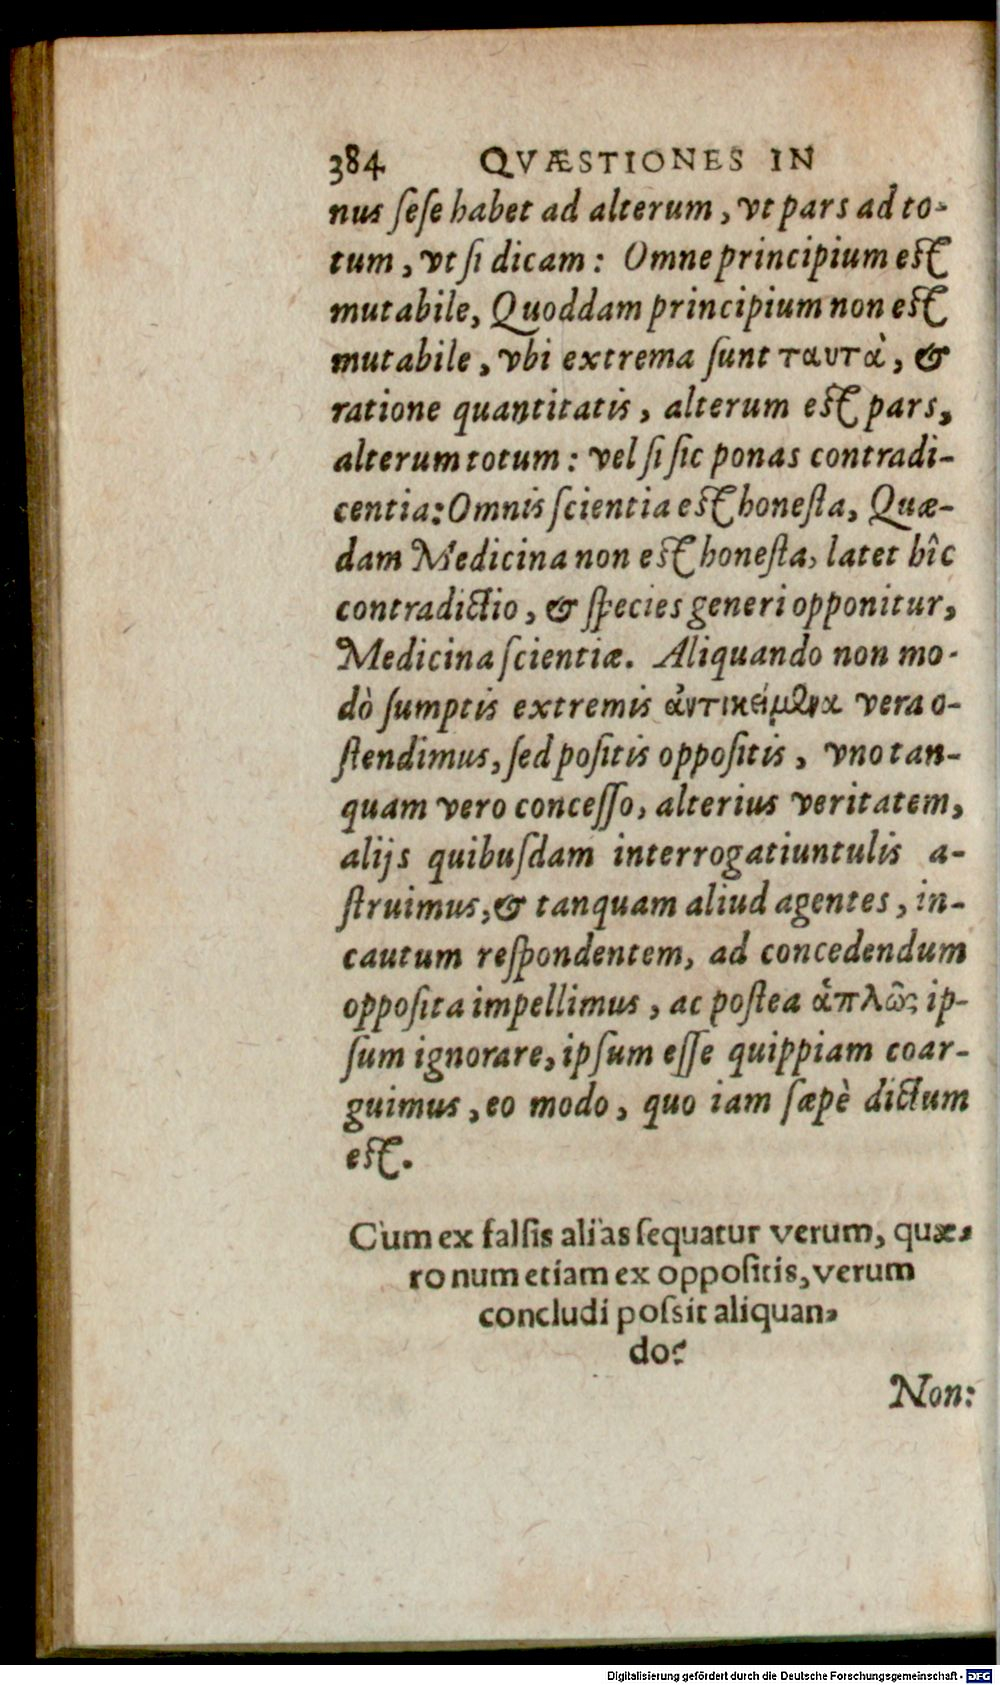 384 QVÆSTIONES IN
nus ſeſe habet ad alterum, vt pars ad to-
tum, vt ſi dicam: Omne principium eſt
mutabile, Quoddam principium non eſt
mutabile, vbi extrema ſunt ταυτὰ, &
ratione quantitatis, alterum eſt pars,
alterum totum: vel ſi ſic ponas contradi-
centia: Omnis ſcientia eſt honeſta, Quæ-
dam Medicina non eſt honeſta, latet hîc
contradictio, & ſpecies generi opponitur,
Medicina ſcientiæ. Aliquando non mo-
dò ſumptis extremis ἀντικείμενα vera o-
ſtendimus, ſed poſitis oppoſitis, vno tan-
quam vero conceſſo, alterius veritatem,
alijs quibuſdam interrogatiuntulis a-
ſtruimus, & tanquam aliud agentes, in-
cautum reſpondentem, ad concedendum
oppoſita impellimus, ac poſtea ἁπλῶς ip-
ſum ignorare, ipſum eſſe quippiam coar-
guimus, eo modo, quo iam ſæpè dictum
eſt.
Cum ex falſis alias ſequatur verum, quæ-
ro num etiam ex oppoſitis, verum
concludi poſsit aliquan-
do?
Non:
Digitalisierung gefördert durch die Deutsche Forschungsgemeinschaft - DFG